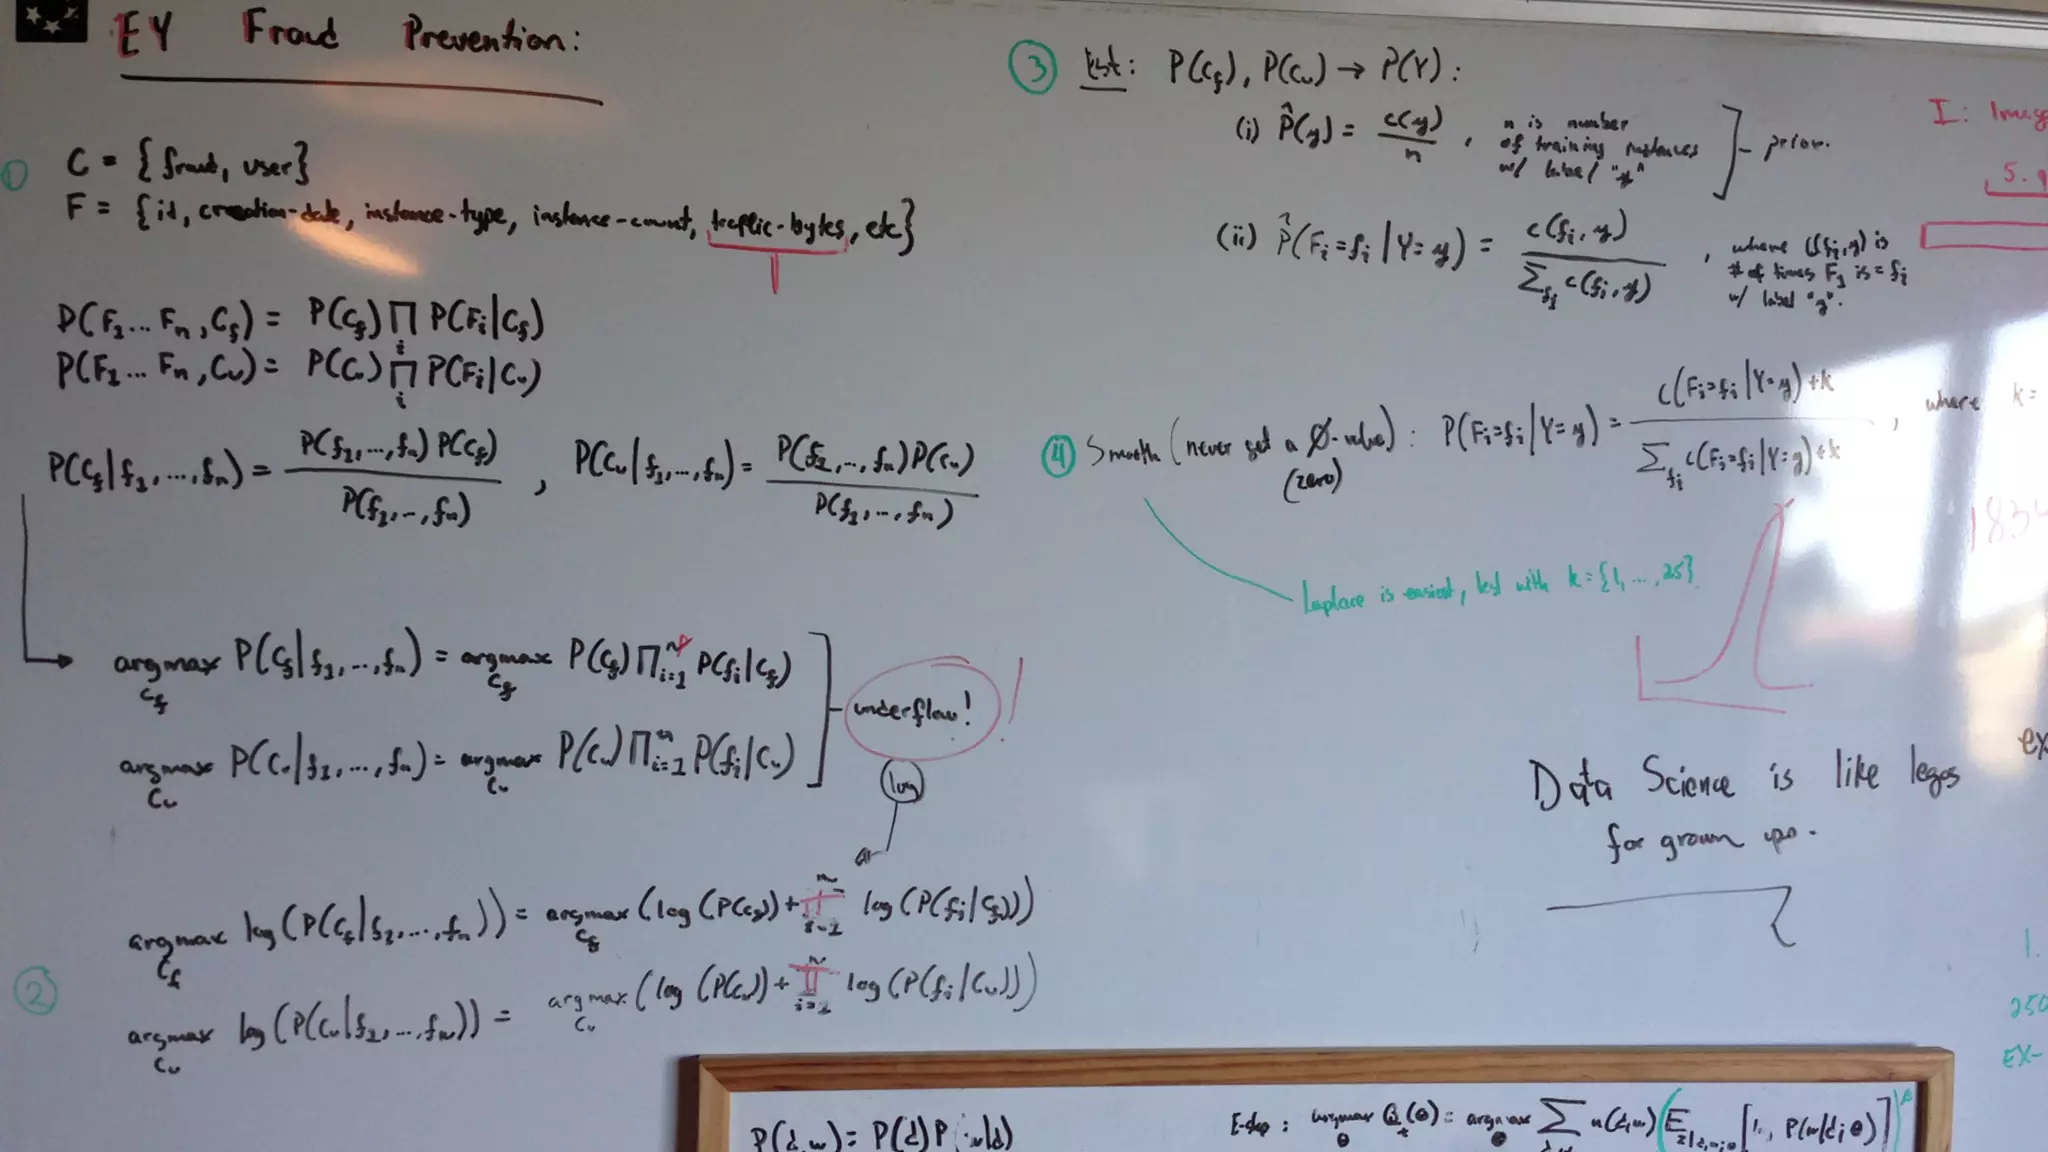 EY Fraud Prevention:
① C = {fraud, user}
F = {id, creation-date, instance-type, instance-count, traffic-bytes, etc}
P(F₁... Fₙ, C_f) = P(C_f) ∏_i P(F_i|C_f)
P(F₁... Fₙ, Cᵤ) = P(Cᵤ) ∏_i P(F_i|Cᵤ)
P(C_f|f₁,...,fₙ) = P(f₁,...,fₙ)P(C_f) / P(f₁,..,fₙ) , P(Cᵤ|f₁,...,fₙ) = P(f₁,..,fₙ)P(Cᵤ) / P(f₁,..,fₙ)
argmax_{C_f} P(C_f|f₁,...,fₙ) = argmax_{C_f} P(C_f) ∏ⁿ_{i=1} P(f_i|C_f)
underflow!
argmax_{Cᵤ} P(Cᵤ|f₁,...,fₙ) = argmax_{Cᵤ} P(Cᵤ) ∏ⁿ_{i=1} P(f_i|Cᵤ)
log
② argmax_{C_f} log(P(C_f|f₁,...,fₙ)) = argmax_{C_f} (log(P(C_f)) + ∏ⁿ_{i=1} log(P(f_i|C_f)))
argmax_{Cᵤ} log(P(Cᵤ|f₁,...,fₙ)) = argmax_{Cᵤ} (log(P(Cᵤ)) + ∏ⁿ_{i=1} log(P(f_i|Cᵤ)))
③ est: P(C_f), P(Cᵤ) → P(Y):
(i) P̂(y) = c(y) / n , n is number
of training instances
w/ label "y"
prior.
(ii) P̂(F_i=f_i|Y=y) = c(f_i,y) / Σ_{f_i} c(f_i,y) , where c(f_i,y) is
# of times F_i is = f_i
w/ label "y".
④ Smooth (never get a Ø-value): P(F_i=f_i|Y=y) = c(F_i=f_i|Y=y)+k / Σ_{f_i} c(F_i=f_i|Y=y)+k , where k =
(zero)
Laplace is easiest, test with k={1,...,25}.
Data Science is like legos
for grown ups.
I: Imag
5.
1834
ex
1.
250
EX-
P(d,w) = P(d)P(w|d)
E-step: argmax_θ Q_t(θ) = argmax_θ Σ n(d,w)
P(w|d;θ)]